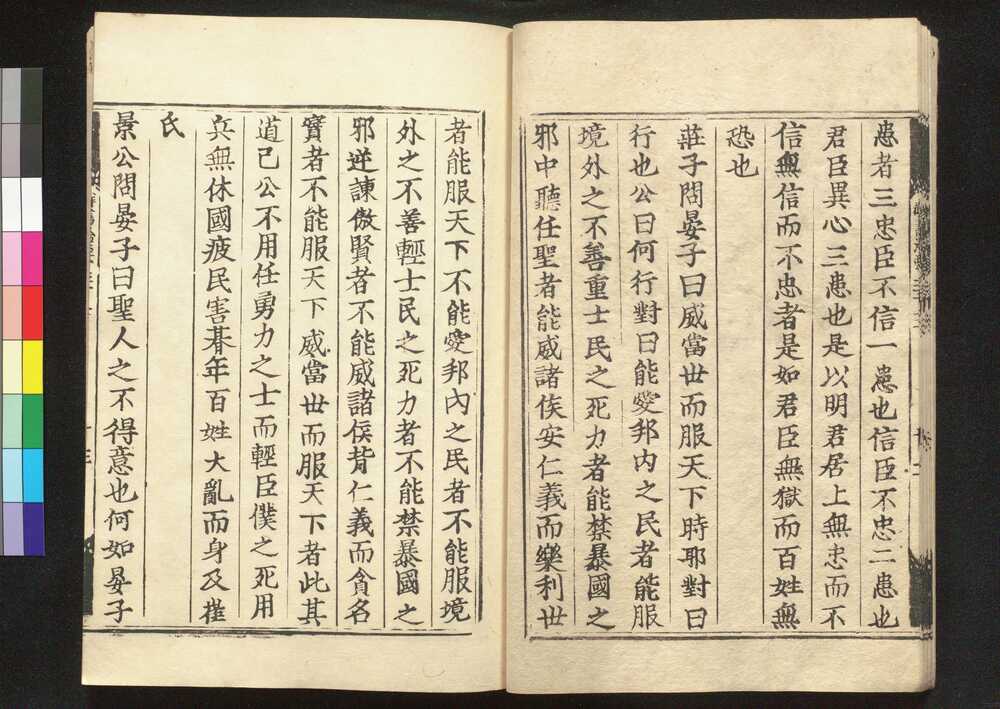 患者三忠臣不信一患也信臣不忠二患也
君臣異心三患也是以明君居上無忠而不
信無信而不忠者是如君臣無獄而百姓無
恐也
莊子問晏子曰威當世而服天下時耶對曰
行也公曰何行對曰能愛邦内之民者能服
境外之不善重士民之死力者能禁暴國之
邪中聽任聖者能威諸侯安仁義而樂利世
者能服天下不能愛邦内之民者不能服境
外之不善輕士民之死力者不能禁暴國之
邪逆諫傲賢者不能威諸侯背仁義而貪名
實者不能服天下威當世而服天下者此其
道已公不用任勇力之士而輕臣僕之死用
兵無休國疲民害朞年百姓大亂而身及崔
氏
景公問晏子曰聖人之不得意也何如晏子